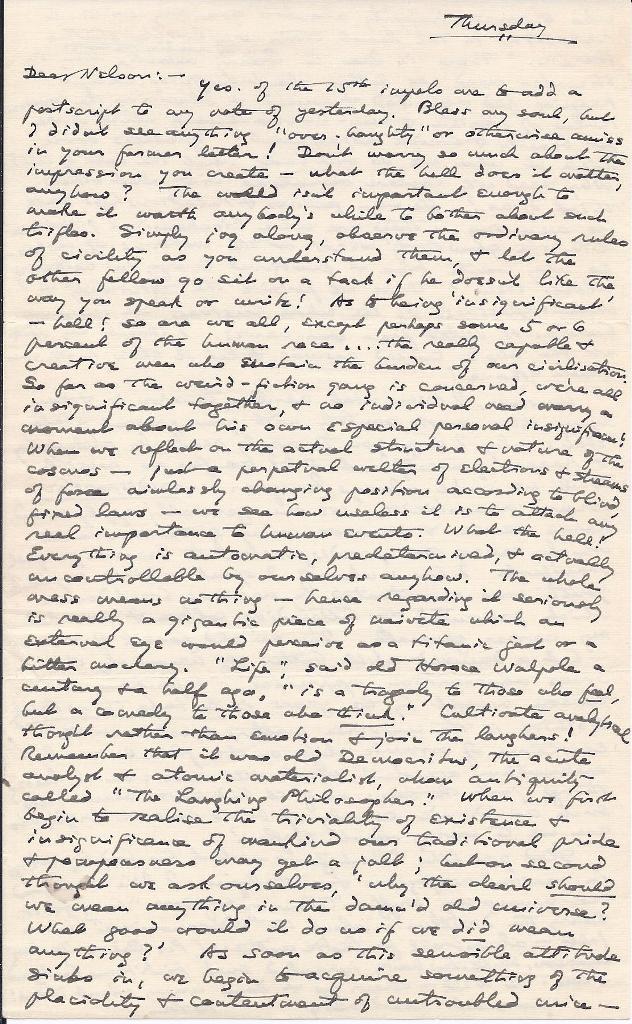 Thursday
Dear Nelson:—
Yrs. of the 15th impels me to add a
postscript to my note of yesterday. Bless my soul, but
I didn't see anything "over-haughty" or otherwise amiss
in your former letter! Don't worry so much about the
impression you create — what the hell does it matter,
anyhow? The world isn't important enough to
make it worth anybody's while to bother about such
trifles. Simply jog along, observe the ordinary rules
of civility as you understand them, & let the
other fellow go sit on a tack if he doesn't like the
way you speak or write! As to being 'insignificant'
— hell! so are we all, except perhaps some 5 or 6
percent of the human race .... the really capable &
creative men who sustain the burden of our civilisation.
So far as the weird-fiction gang is concerned, we're all
insignificant together, & no individual need worry a
moment about his own especial personal insignificance!
When we reflect on the actual structure & nature of the
cosmos — just a perpetual welter of electrons & streams
of force aimlessly changing position according to blind,
fixed laws — we see how useless it is to attach any
real importance to human events. What the hell!
Everything is automatic, predetermined, & actually
uncontrollable by ourselves anyhow. The whole
mess means nothing — hence regarding it seriously
is really a gigantic piece of naivete which an
external eye would perceive as a titanic jest or a
bitter mockery. "Life", said old Horace Walpole a
century & a half ago, "is a tragedy to those who feel,
but a comedy to those who think." Cultivate analytical
thought rather than emotion & join the laughers!
Remember that it was old Democritus, the acute
analyst & atomic materialist, whom antiquity
called "The Laughing Philosopher." When we first
begin to realise the triviality of existence &
insignificance of mankind our traditional pride
& pompousness may get a jolt; but on second
thought we ask ourselves, 'why the devil should
we mean anything in the damn'd old universe?
What good would it do us if we did mean
anything?' As soon as this sensible attitude
sinks in, we begin to acquire something of the
placidity & contentment of untroubled mice —